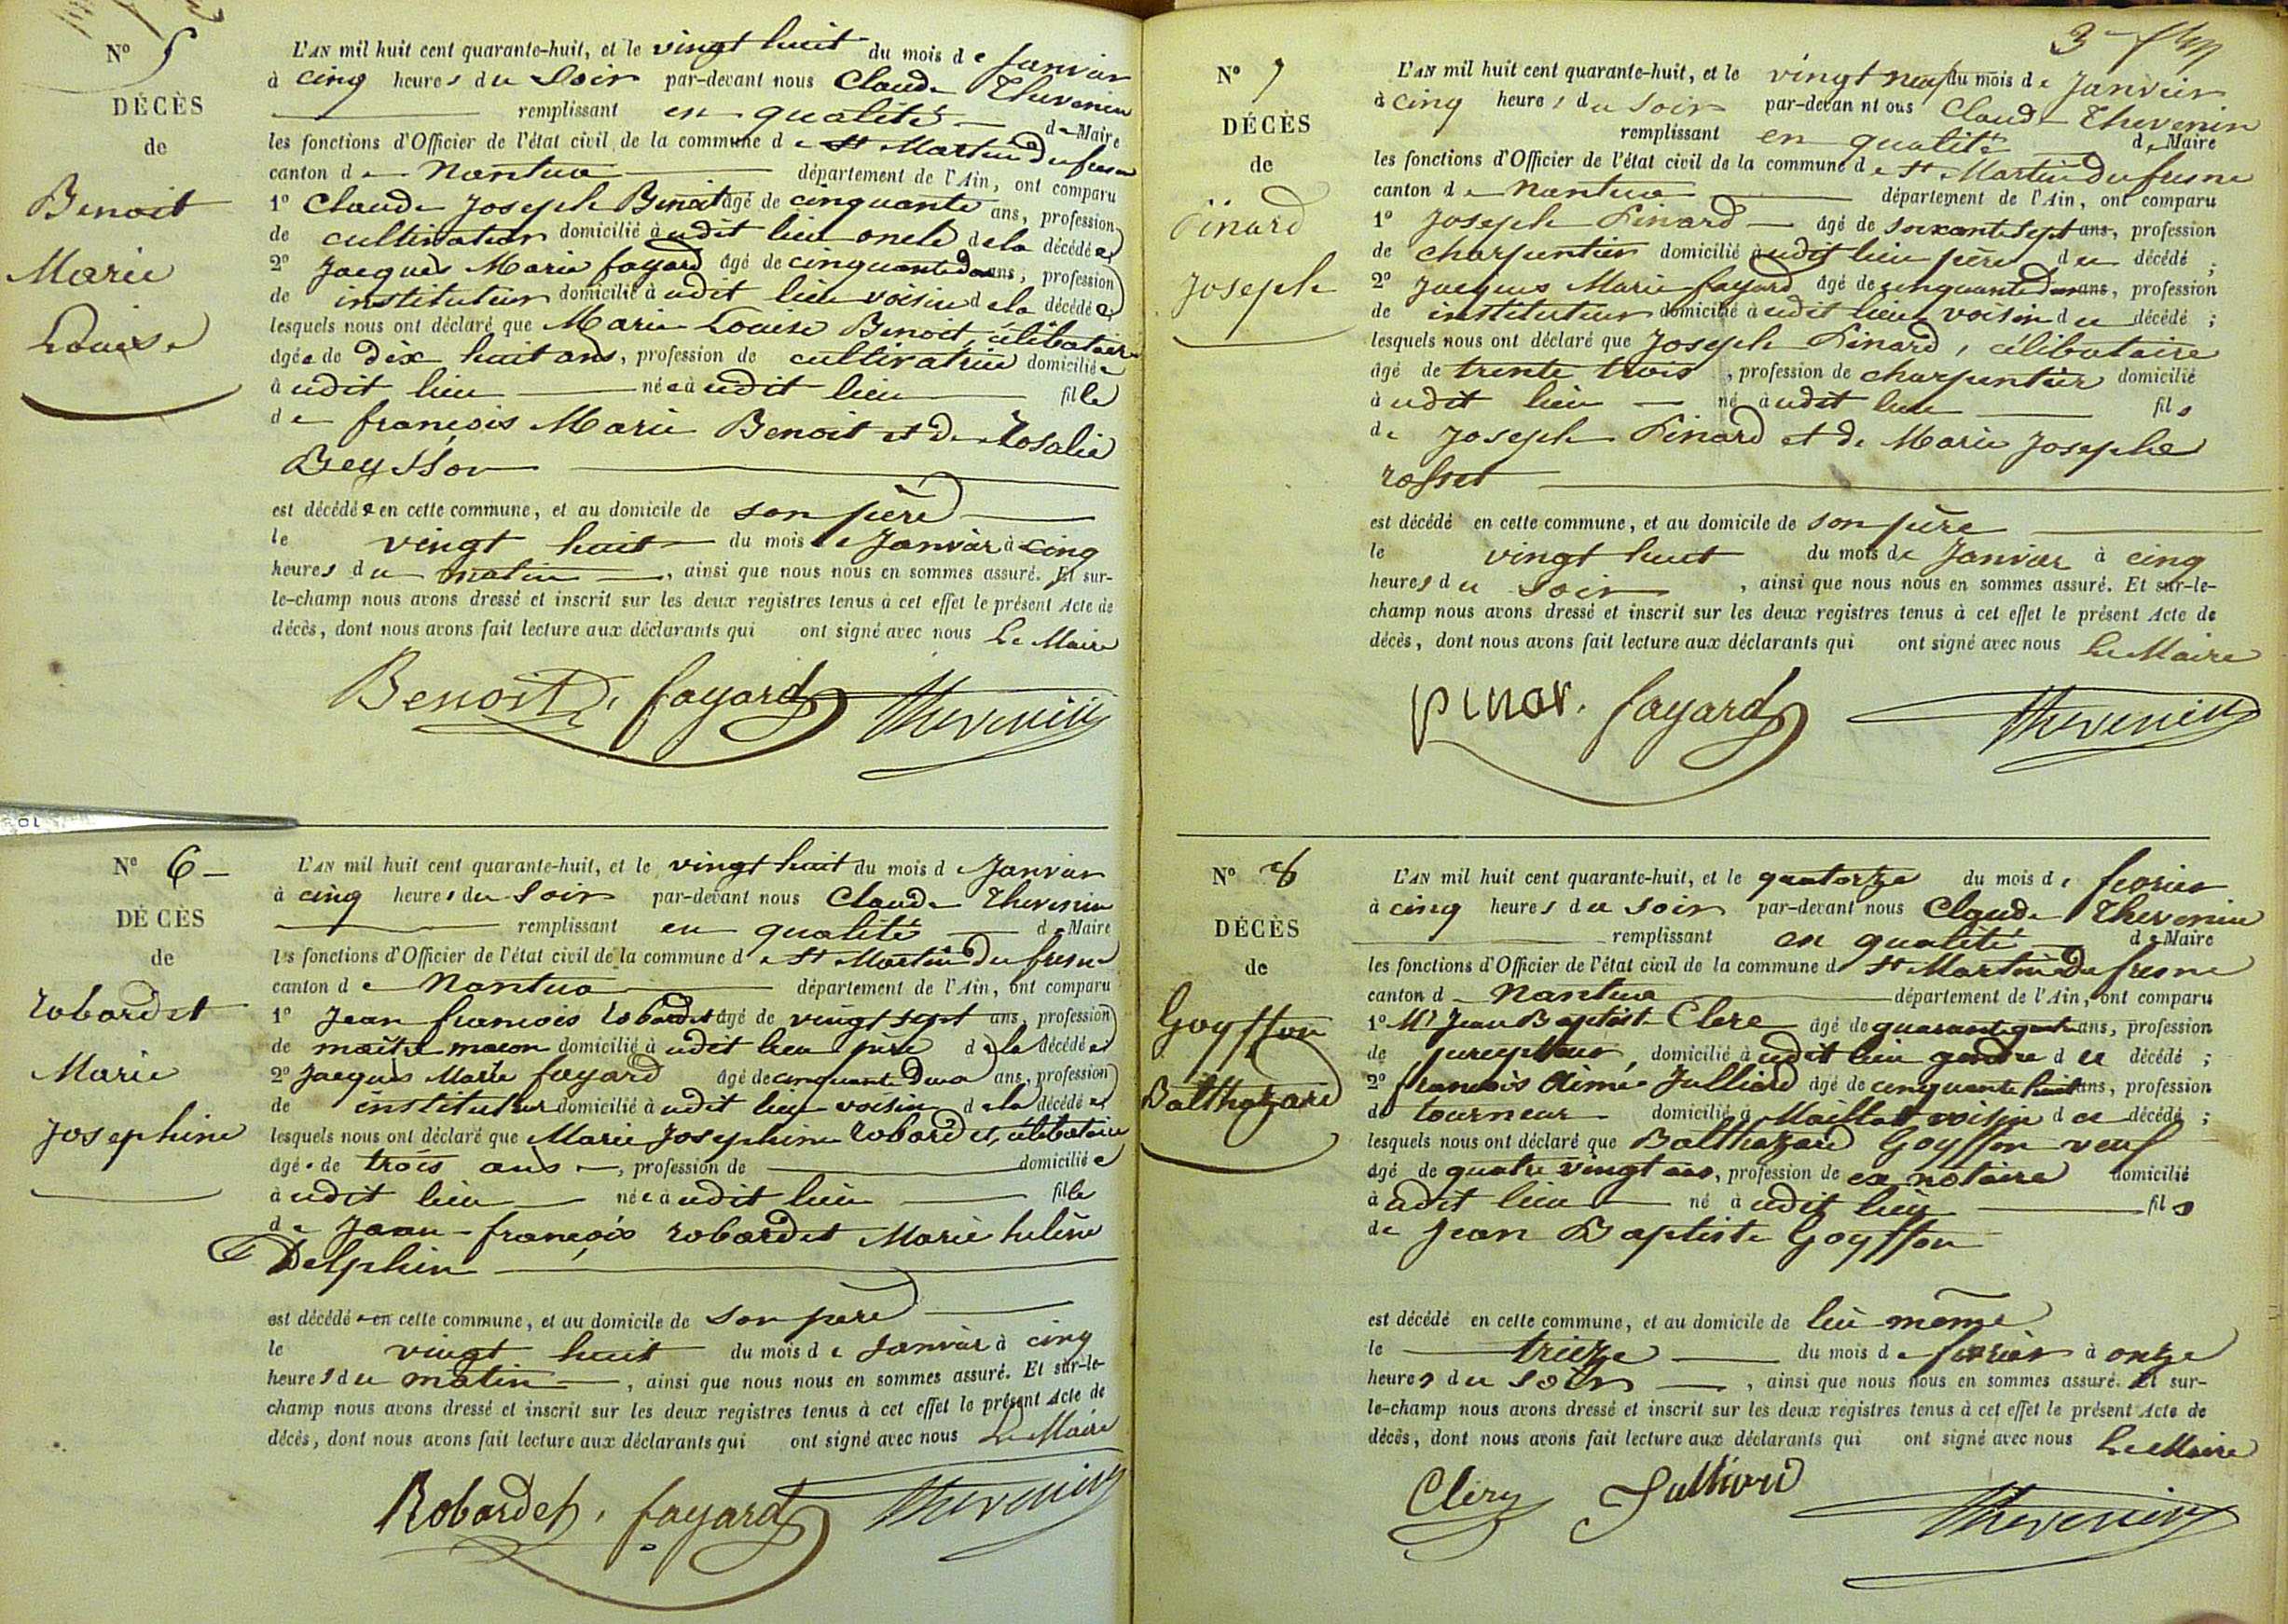 N° 5
DÉCÈS
de
Benoit
Marie
Louise
L'AN mil huit cent quarante-huit, et le vingt huit du mois de Janvier
à cinq heures du soir par-devant nous Claude Thevenin
remplissant en qualité de Maire
les fonctions d'Officier de l'état civil de la commune de St Martin du fresne
canton de Nantua département de l'Ain, ont comparu
1° Claude Joseph Benoit âgé de cinquante ans, profession
de cultivateur domicilié audit lieu oncle de la décédée
2° Jacques Marie fayard âgé de cinquante deux ans, profession
de instituteur domicilié à udit lieu voisin de la décédée
lesquels nous ont déclaré que Marie Louise Benoit, célibataire
âgée de dix huit ans, profession de cultivatrice domiciliée
à udit lieu née à udit lieu fille
de françois Marie Benoit et de Rosalie
Beysson
est décédée en cette commune, et au domicile de son père
le vingt huit du mois de Janvier à cinq
heures du matin, ainsi que nous nous en sommes assuré. Et sur-
le-champ nous avons dressé et inscrit sur les deux registres tenus à cet effet le présent Acte de
décès, dont nous avons fait lecture aux déclarants qui ont signé avec nous Le Maire
Benoit fayard Thevenin
N° 6
DÉCÈS
de
robardet
Marie
Josephine
L'AN mil huit cent quarante-huit, et le vingt huit du mois de Janvier
à cinq heures du soir par-devant nous Claude Thevenin
remplissant en qualité de Maire
les fonctions d'Officier de l'état civil de la commune de St Martin du fresne
canton de Nantua département de l'Ain, ont comparu
1° Jean françois robardet âgé de vingt sept ans, profession
de maître maçon domicilié à udit lieu père de la décédée
2° Jacques Marie fayard âgé de cinquante deux ans, profession
de instituteur domicilié à udit lieu voisin de la décédée
lesquels nous ont déclaré que Marie Josephine robardet, célibataire
âgée de trois ans, profession de domiciliée
à udit lieu née à udit lieu fille
de Jean-françois robardet Marie helène
Delphin
est décédée en cette commune, et au domicile de son père
le vingt huit du mois de Janvier à cinq
heures du matin, ainsi que nous nous en sommes assuré. Et sur-le-
champ nous avons dressé et inscrit sur les deux registres tenus à cet effet le présent Acte de
décès, dont nous avons fait lecture aux déclarants qui ont signé avec nous Le Maire
Robardet fayard Thevenin
3
N° 7
DÉCÈS
de
Pinard
Joseph
L'AN mil huit cent quarante-huit, et le vingt neuf du mois de Janvier
à cinq heures du soir par-devan nt ous Claude Thevenin
remplissant en qualité de Maire
les fonctions d'Officier de l'état civil de la commune de St Martin Du fresne
canton de Nantua département de l'Ain, ont comparu
1° Joseph Pinard âgé de soixante sept ans, profession
de charpentier domicilié à udit lieu père du décédé ;
2° Jacques Marie fayard âgé de cinquante deux ans, profession
de instituteur domicilié à udit lieu voisin du décédé ;
lesquels nous ont déclaré que Joseph Pinard, célibataire
âgé de trente trois, profession de charpentier domicilié
à udit lieu né à udit lieu fils
de Joseph Pinard et de Marie Josephe
rosset
est décédé en cette commune, et au domicile de son père
le vingt huit du mois de Janvier à cinq
heures du soir, ainsi que nous nous en sommes assuré. Et sur-le-
champ nous avons dressé et inscrit sur les deux registres tenus à cet effet le présent Acte de
décès, dont nous avons fait lecture aux déclarants qui ont signé avec nous Le Maire
pinar. fayard Thevenin
N° 8
DÉCÈS
de
Goyffon
Balthazard
L'AN mil huit cent quarante-huit, et le quatorze du mois de fevrier
à cinq heures du soir par-devant nous Claude Thevenin
remplissant en qualité de Maire
les fonctions d'Officier de l'état civil de la commune d St Martin Du fresne
canton de Nantua département de l'Ain, ont comparu
1° Mr Jean Baptiste Clerc âgé de quarante quatre ans, profession
de percepteur, domicilié à udit lieu gendre du décédé ;
2° françois Aimé Julliard âgé de cinquante huit ans, profession
de tourneur domicilié à Maillat voisin du décédé ;
lesquels nous ont déclaré que Balthazard Goyffon veuf
âgé de quatre vingt ans, profession de ex notaire domicilié
à udit lieu né à udit lieu fils
de Jean Baptiste Goyffon
est décédé en cette commune, et au domicile de lui même
le treize du mois de fevrier à onze
heures du soir, ainsi que nous nous en sommes assuré. Et sur-
le-champ nous avons dressé et inscrit sur les deux registres tenus à cet effet le présent Acte de
décès, dont nous avons fait lecture aux déclarants qui ont signé avec nous Le Maire
Clerc Julliard Thevenin